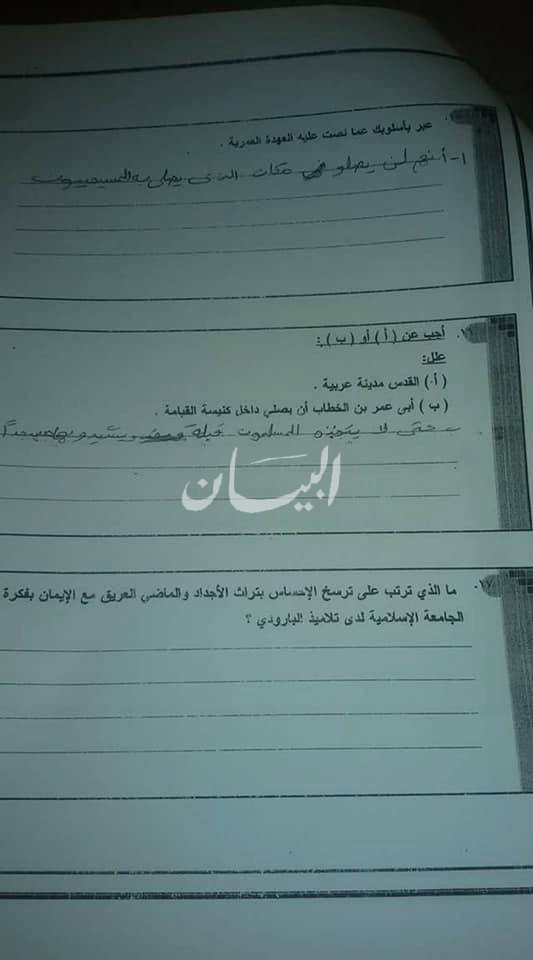 عبر بأسلوبك عما نصت عليه العهدة العمرية .
١- أنهم لن يصلو في مكان الذى يصلى به المسيحيون
أجب عن ( أ ) أو ( ب ) :
علل:
( أ ) القدس مدينة عربية .
( ب ) أبى عمر بن الخطاب أن يصلي داخل كنيسة القيامة .
حتى لا يتخذه المسلمون قبلة ويشيدو بها مسجداً
البيان
١٧. ما الذي ترتب على ترسخ الإحساس بتراث الأجداد والماضي العريق مع الإيمان بفكرة
الجامعة الإسلامية لدى تلاميذ البارودي ؟